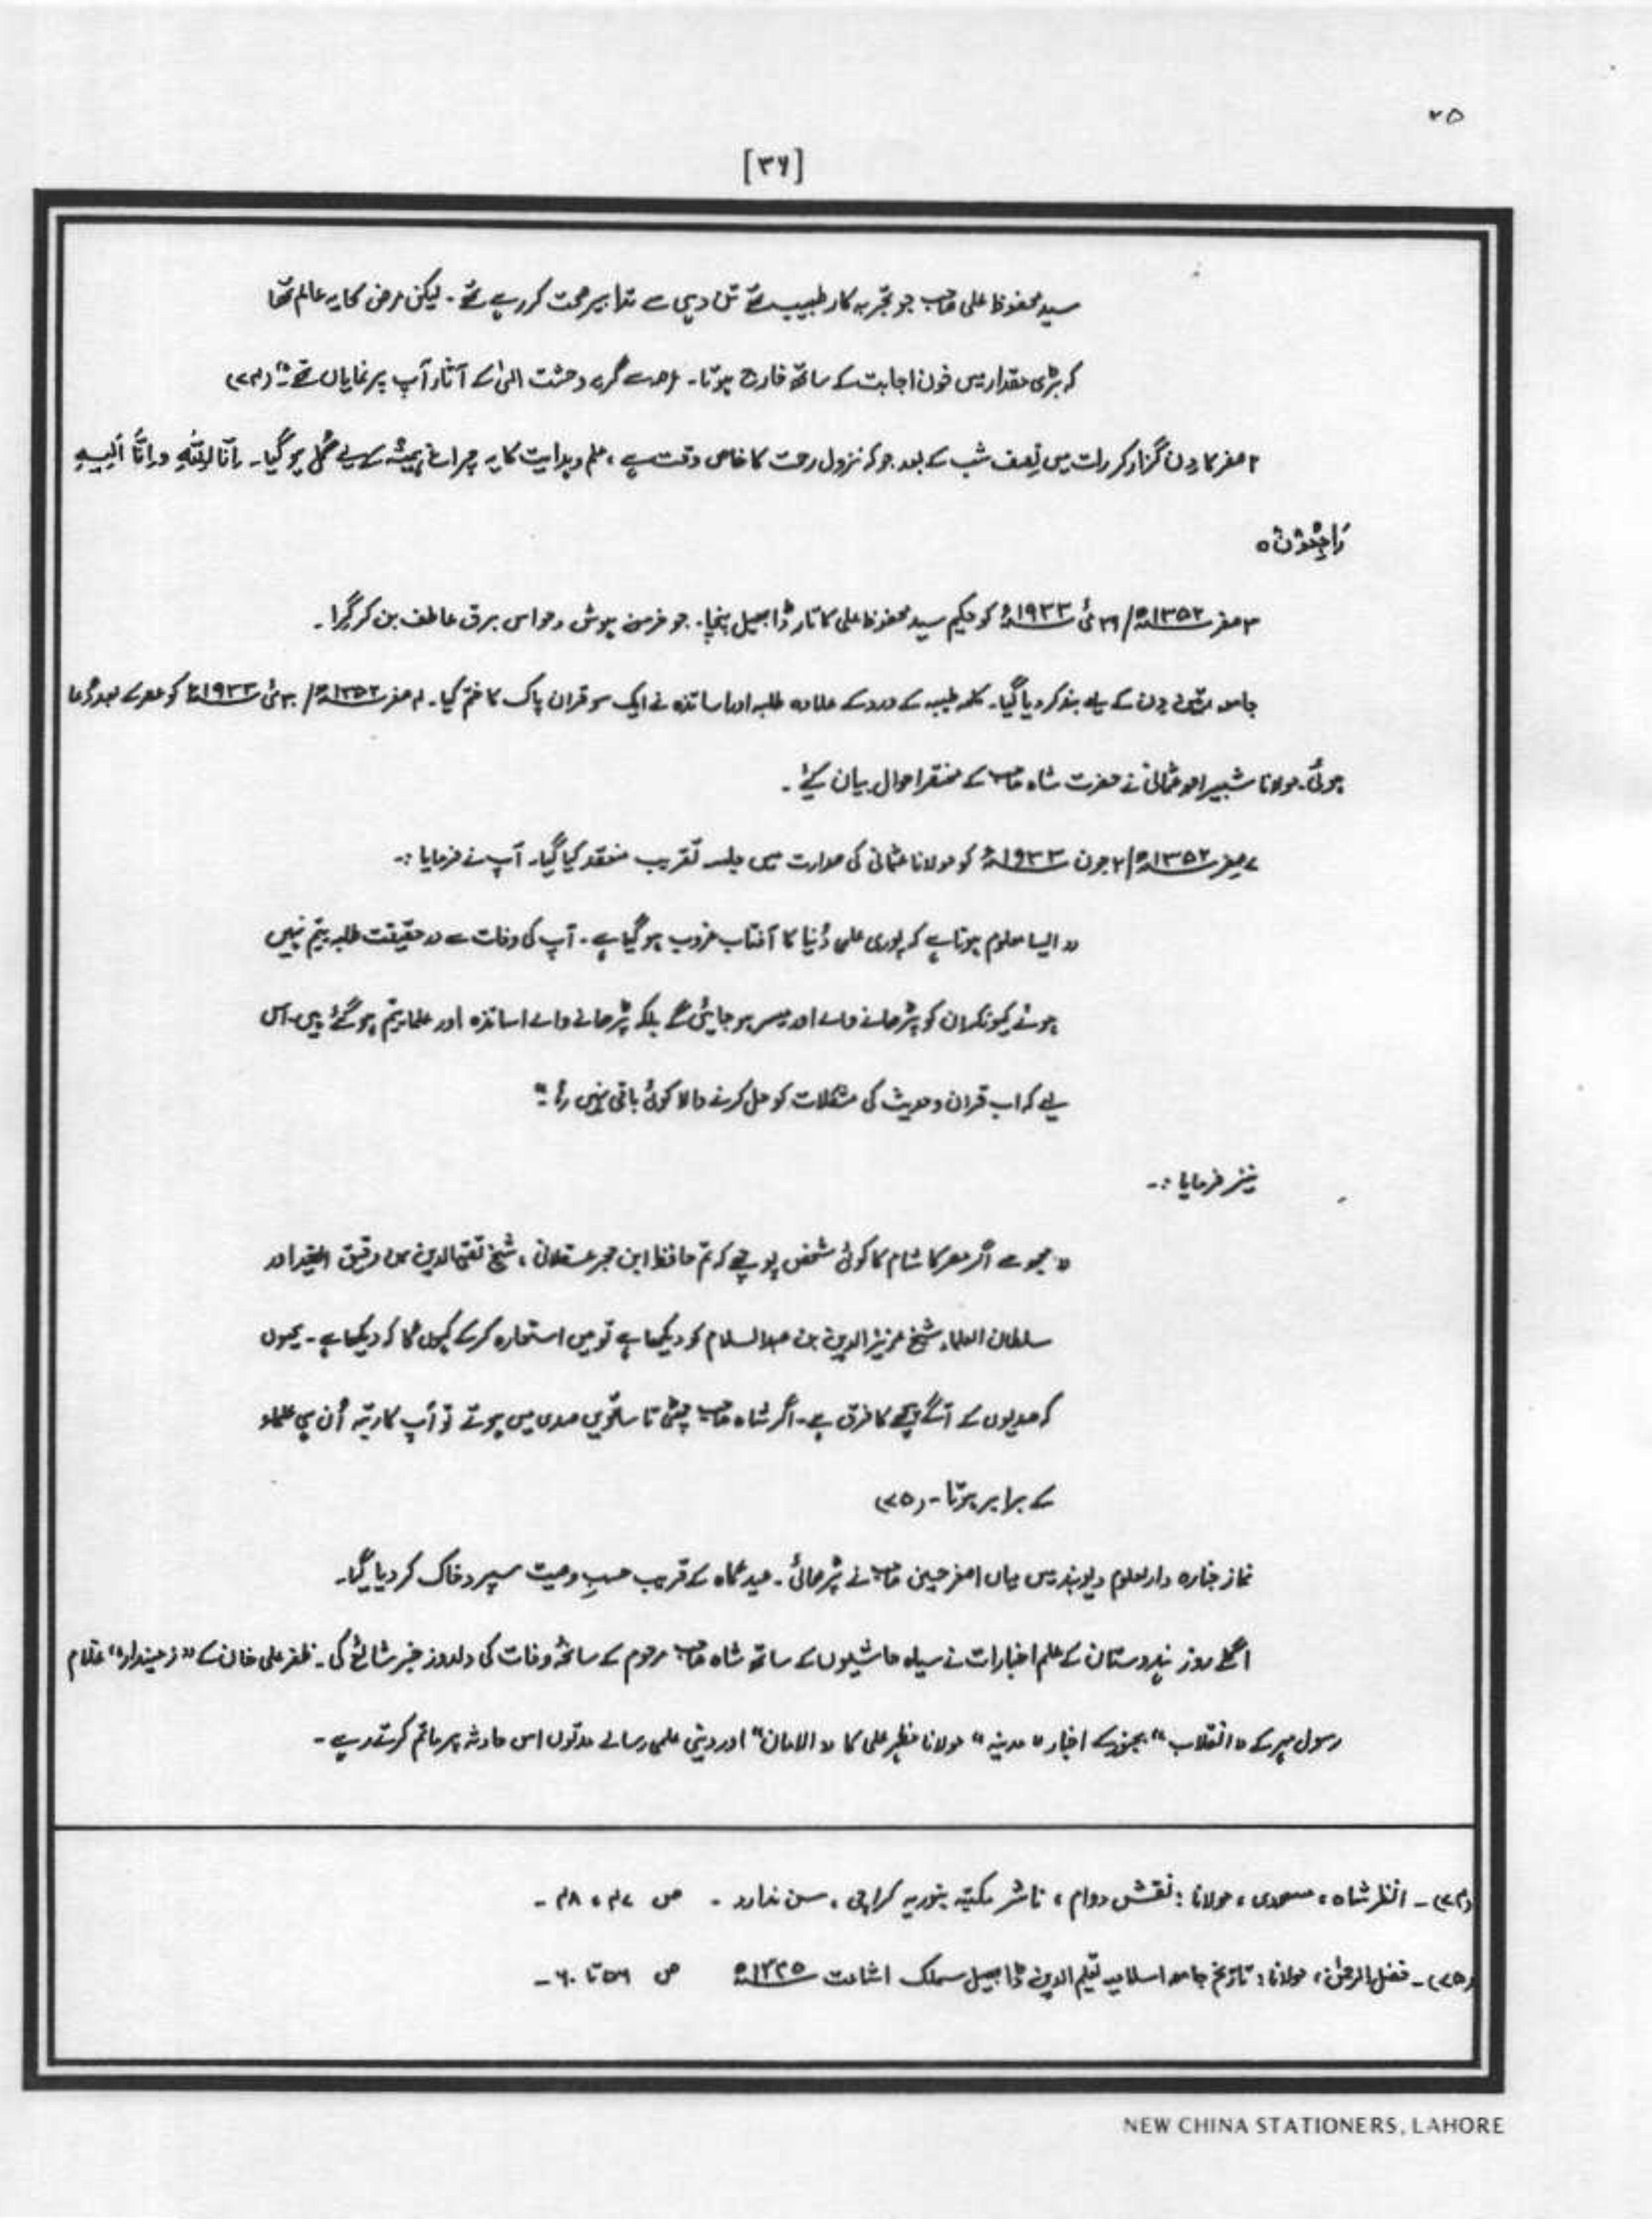 ۲۵
[۳۶]
سید محفوظ علی صاحب جو تجربہ کار طبیب تھے تن دہی سے تدابیر صحت کر رہے تھے ۔ لیکن مرض کا یہ عالم تھا
کہ بڑی مقدار میں خون اجابت کے ساتھ خارج ہوتا ۔ گریہ و خشت الٰہی کے آثار آپ پر نمایاں تھے ۔" (۷۴)
۲ صفر کا دن گزار کر رات میں نصف شب کے بعد جو کہ نزول رحمت کا خاص وقت ہے ، علم و ہدایت کا یہ چراغ ہمیشہ کے لیے گُل ہو گیا ۔ اِنَّا لِلّٰہِ وَ اِنَّا اِلَیہِ
رَاجِعُوْنَ ہ
۳ صفر ۱۳۵۲ھ / ۲۹ مئی ۱۹۳۳ء کو حکیم سید محفوظ علی کا تار ڈابھیل پہنچا ۔ جو خرمن ہوش و حواس برق عاطف بن کر گرا ۔
جامعہ تین دن کے لیے بند کر دیا گیا ۔ کلمہ طیبہ کے ورد کے علاوہ طلبہ اور اساتذہ نے ایک سو قران پاک کا ختم کیا ۔ ۴ صفر ۱۳۵۲ھ / ۳۰ مئی ۱۹۳۳ء کو عصر کے بعد دُعا
ہوئی ۔ مولانا شبیر احمد عثمانی نے حضرت شاہ صاحب کے مختصر احوال بیان کیٔے ۔
۷ صفر ۱۳۵۲ھ / ۲ جون ۱۹۳۳ء کو مولانا عثمانی کی صدارت میں جلسہ تقریب منعقد کیا گیا ۔ آپ نے فرمایا :۔
" ایسا معلوم ہوتا ہے کہ پوری علمی دُنیا کا آفتاب غروب ہو گیا ہے ۔ آپ کی وفات سے در حقیقت طلبہ یتیم نہیں
ہوئے کیونکہ ان کو پڑھانے والے اور میسر ہو جائیں گے بلکہ پڑھانے والے اساتذہ اور علما یتیم ہو گئے ہیں ۔ اس
لیے کہ اب قران و حدیث کی مشکلات کو حل کرنے والا کوئی باقی نہیں رہا ۔"
نیز فرمایا :۔
" مجھ سے اگر مصر کا شام کا کوئی شخص پوچھے کہ تم حافظ ابن حجر عسقلانی ، شیخ تقی الدین بن دقیق العید اور
سلطان العلماء شیخ عزیز الدین بن عبدالسلام کو دیکھا ہے تو میں استعارہ کر کے کہوں گا کہ دیکھا ہے ۔ کیوں
کہ صدیوں کے آگے پیچھے کا فرق ہے ۔ اگر شاہ صاحب چھٹی تا ساتویں صدی میں ہوتے تو آپ کا رتبہ اُن ہی علماء
کے برابر ہوتا ۔ (۷۵)
نماز جنازہ دارلعلوم دیوبند میں میاں اصغر حسین صاحب نے پڑھائی ۔ عید گاہ کے قریب حسبِ وصیت سپرد خاک کر دیا گیا ۔
اگلے روز ہندوستان کے اخبارات نے سیاہ حاشیوں کے ساتھ شاہ صاحب مرحوم کے سانحۂ وفات کی دلدوز خبر شائع کی ۔ ظفر علی خان کے "زمیندار" غلام
رسول مہر کے "انقلاب" بجنور کے اخبار "مدینہ" مولانا مظہر علی کا "الامان" اور دینی علمی رسالے مدتوں اس حادثہ پر ماتم کرتے رہے ۔
(۷۴) ۔ انظر شاہ ، مسعودی ، مولانا : نقش دوام ، ناشر مکتبہ بنوریہ کراچی ، سن ندارد ۔ ص ۴۷ ، ۴۸ ۔
(۷۵) ۔ فضل الرحمٰن ، مولانا : تاریخ جامعہ اسلامیہ تعلیم الدین ڈابھیل سملک اشاعت ۱۴۲۵ھ ص ۵۶ تا ۶۰ ۔
NEW CHINA STATIONERS, LAHORE